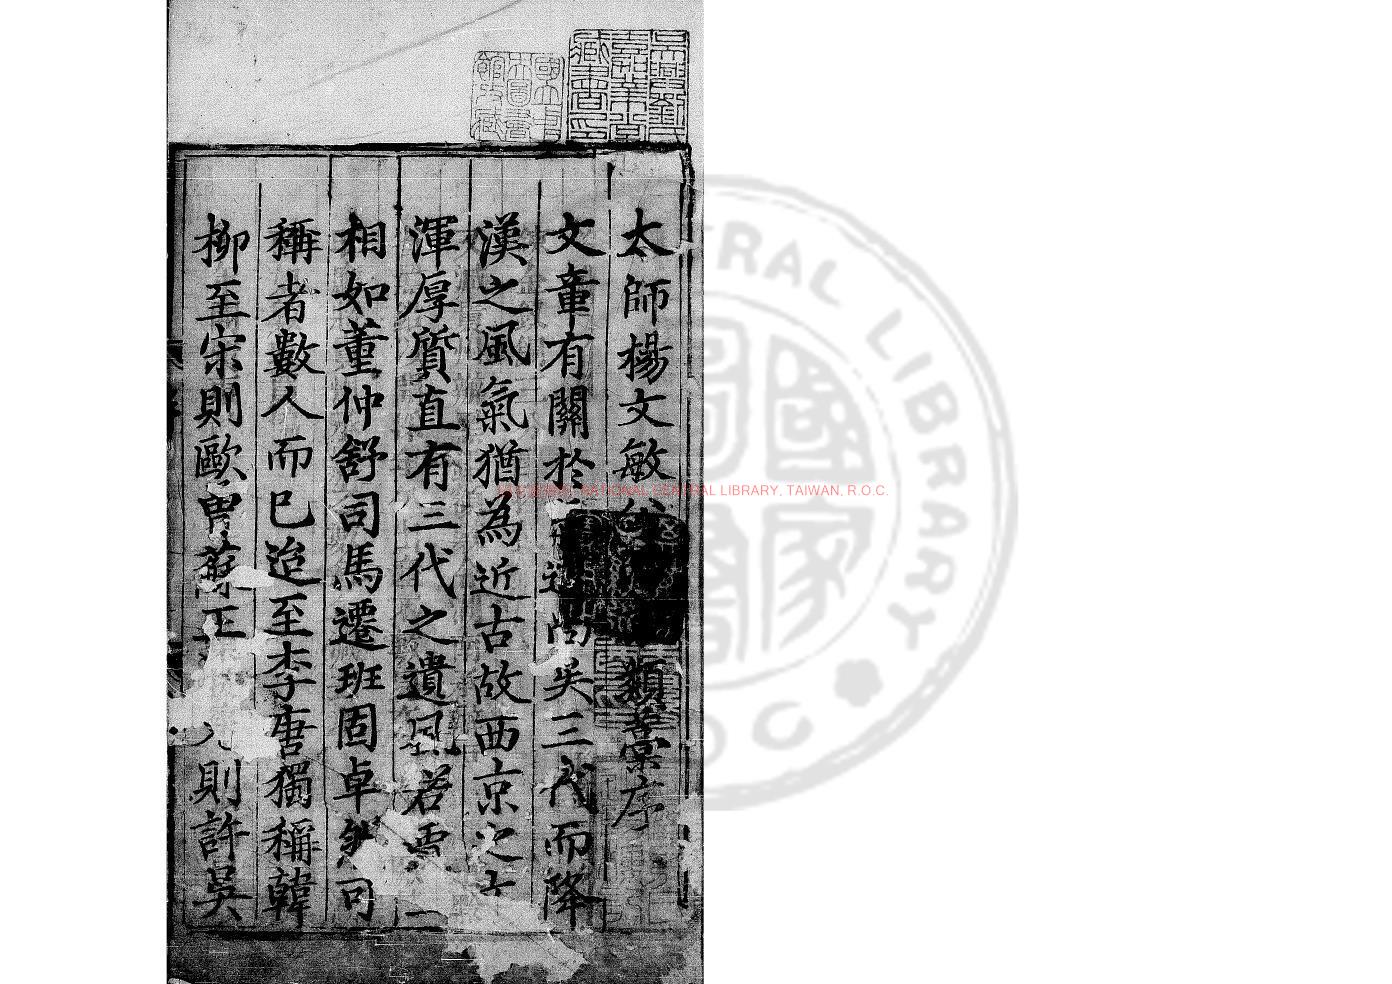 太師楊文敏類藁序
文章有關於尚矣三代而降
漢之風氣猶為近古故西京之
渾厚質直有三代之遺風若賈
相如董仲舒司馬遷班固卓然可
稱者數人而已迨至李唐獨稱韓
柳至宋則歐曽蘇王則許吳
吳興劉氏嘉業堂藏書印
國立中央圖書館收藏
NATIONAL CENTRAL LIBRARY, TAIWAN, R.O.C.